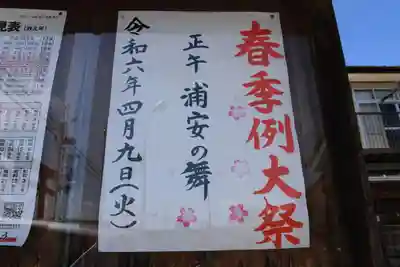 春季例大祭
正午、浦安の舞
令和六年四月九日(火)